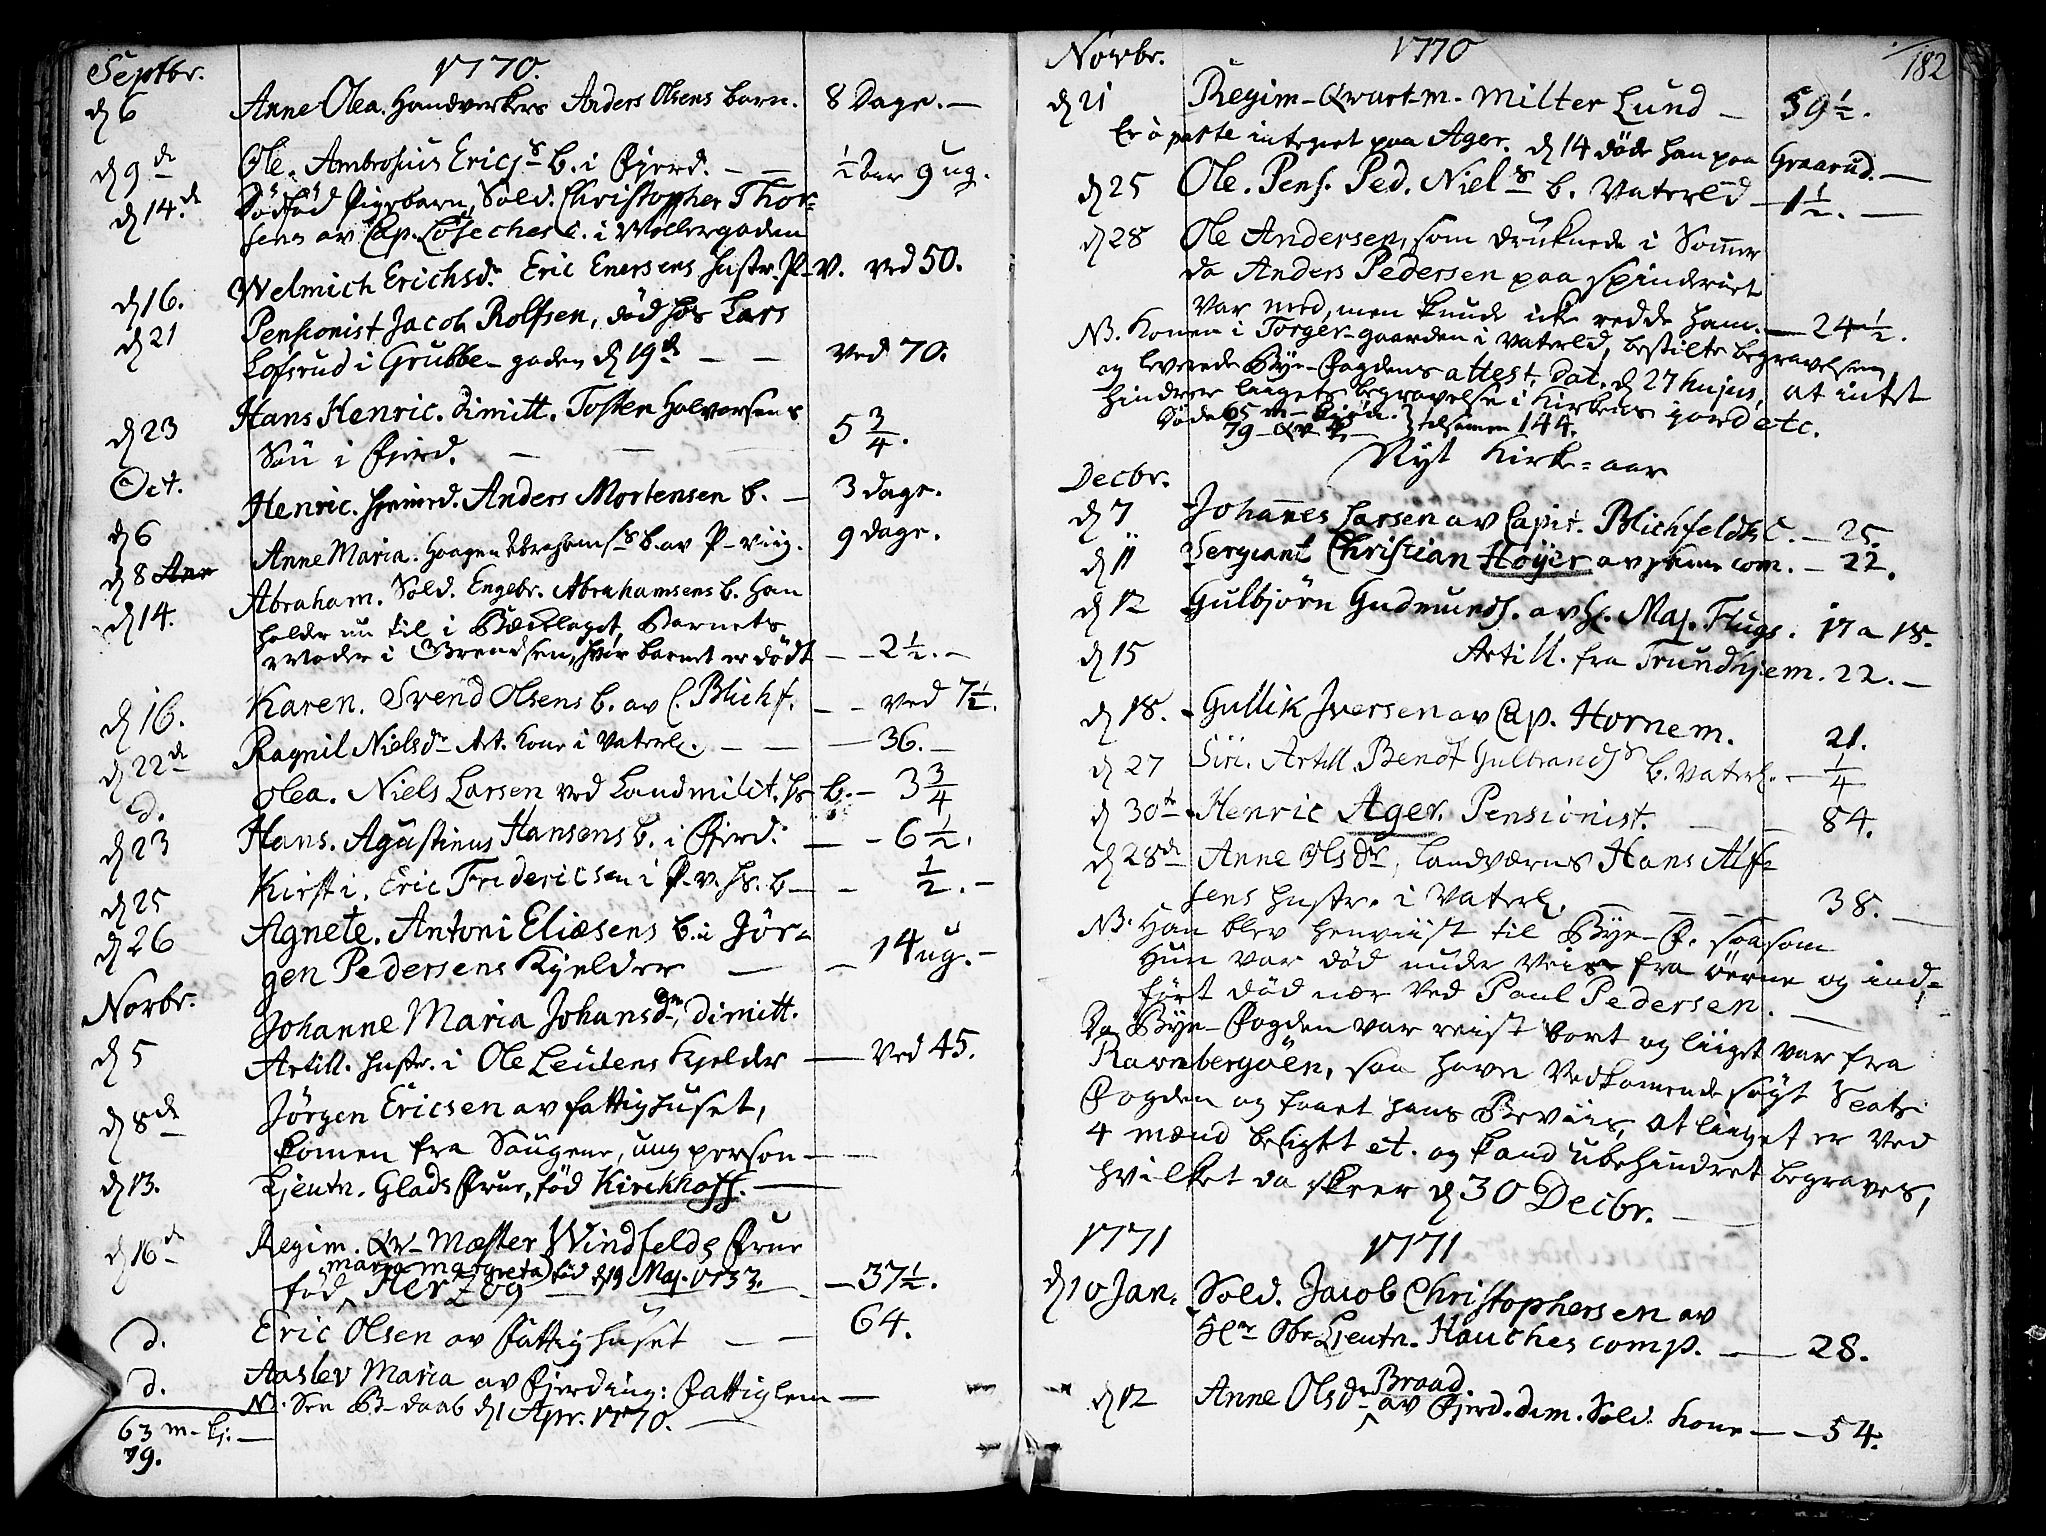 Septbr. 1770.
d 6 Anne Olea. Handverkers Anders Olsens barn. 8 Dage. —
d 9de Ole. Ambrosius Ericss b. i Fjerd. — — ½ aar 9 ug.
d 14.de Dødfød Pigebarn, Sold. Christopher Thor-
sens av Cap. Løseches C. i Vollergaden
d 16. Welmich Erichsdr Eric Enersens hustr. P-V. ved 50.
d 21 Pensionist Jacob Rolfsen, død hos Lars
Lofsrud i Grubbe-gaden d 19de — — ved 70.
d 23 Hans Henric. dimitt. Tosten Halvorsens
Søn i Fjerd. — — — 5 3/4.
Oct.
d 6 Henric. Anders Mortensen b. — 3 dage.
d 8 Ann Anne Maria. Haagen Abrahamss b. av P-viig. 9 dage.
d 14. Abraham. Sold. Engebr. Abrahamsens b. Han
holder nu til i Barnets
Moder i Grendsen, hvor barnet er dødt — — 2½. —
d 16. Karen. Svend Olsens b. av C. Blichf. — — ved 7½.
d 22de Ragnil Nielsdr Art. Kone i Vaterl. — — — 36. —
d. Olea. Niels Larsen ved Landmilit. hs b. — 3 3/4
d 23 Hans. Agustinus Hansens b. i Fjerd: — — 6½.
d 25 Kirsti. Eric Fridericsen i P.v. hs. b — — ½. —
d 26 Agnete. Antoni Eliæsens b. i Jør-
gen Pedersens Kjelder — — 14 ug. —
Novbr.
d 5 Johanne Maria Johansdr, dimitt.
Artill. hustr. i Ole Leutens Kjelder — ved 45.
d 8de Jørgen Ericsen av fattighuset,
komen fra Saugene, ung person — —
d 13. Ljeutn. Glads Frue, fød Kirchhoff. —
d 16de Regim. Qv-Mæster Windfelds Frue
maria margreta) fød d 19 Maj. 1733.
fød, Herzog — — 37½.
d. Eric Olsen av Fattighuset — — 64.
d. Aaslev Maria av Fjerding: Fattiglem —
NB. See B-daab d 1 Apr. 1770. —
63 m-kj. —
79.
182
Novbr. 1770
d 21 Regim-Qvart-m. Milter Lund — 59½.
Er à parte integert paa Ager. d 14 døde han paa Graarud. —
d 25 Ole. Pens. Ped. Niels b. Vaterld — 1½. —
d 28 Ole Andersen, som druknede i Somer
da Anders Pedersen paa Spinderiet
var med, men kunde icke redde ham. — 24½.
NB. Konen i Torger-gaarden i Vaterld, bestilte begravelsen,
og leverede Bye-Fogdens attest, Dat. d 27 hujus, at intet
hindrer liigets begravelse i Kirkens jord etc.
Døde 65 m-Kjøn.
79 - Qv K — } tilsamen 144.
Nyt Kirke-aar
Decbr.
d 7 Johanes Larsen av Capit. Blichfeldts C. — 25.
d 11 Sergiant Christian Høyer av samme com. — 22.
d 12 Gulbjørn Gudmunds. av H. Maj. Flugs. 17 a 18.
d 15 Artill. fra Trundhjem. 22. —
d 18. Gullik Iversen av Cap. Hornem. 21.
d 27 Siri. Artill. Bendt Gulbrands b. Vaterl. — 1/4
d 30te Henric Ager. Pensionist. — — 84.
d 28de Anne Olsdr, Landværns Hans Alf-
sens hustr. i Vaterl. — — — 38. —
NB. Han blev henviist til Bye-F. saasom
Hun var død unde veis fra øerne og ind-
ført død nær ved Paul Pedersen. —
Da Bye-Fogden var reist bort og liiget var fra
Ravnbergøen, saa have Vedkomende søgt Stats
Fogden og faaet hans Beviis, at liiget er ved
4 mænd besigtet. og kand ubehindret begraves,
hvilket da skeer d 30 Decbr. —
1771 1771
d 10 Jan. Sold. Jacob Christophersen av
Hr Obr Ljeutn. Hauches comp. — 28.
d 12 Anne Olsdr Braad. av Fjerd. dim. Sold. kone — — 54.